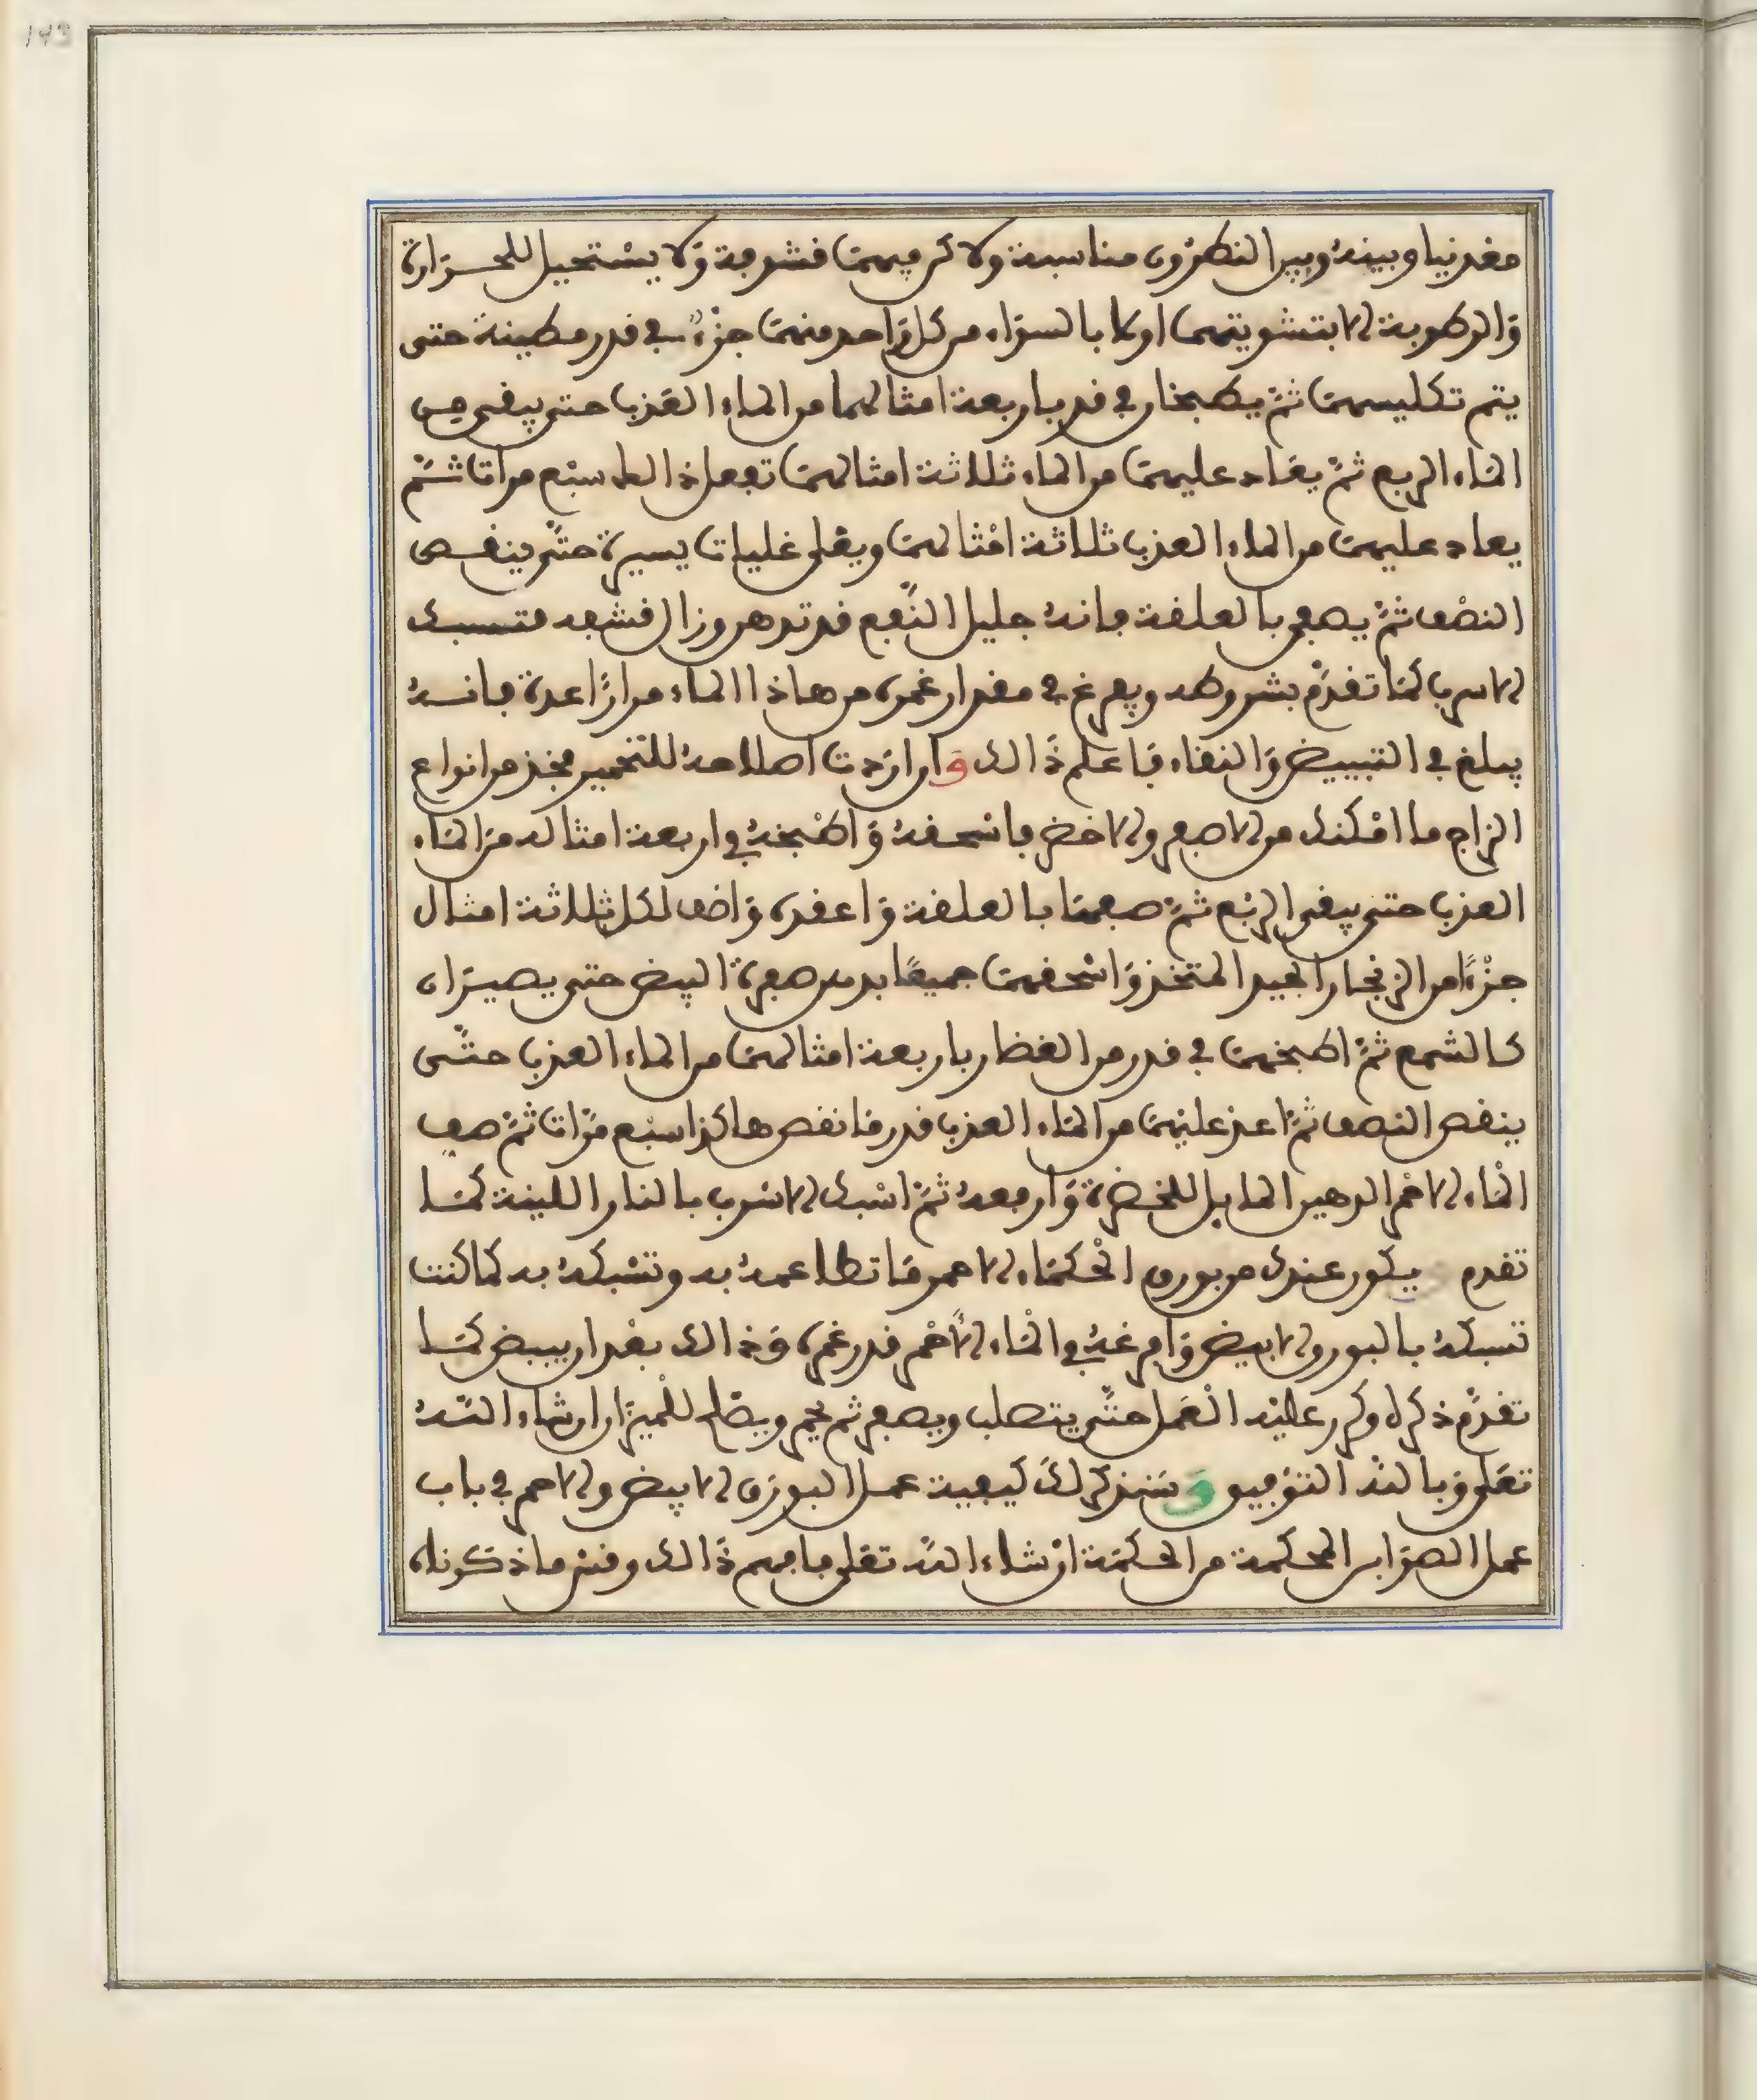 معدنيا وبينه وبين النطرون مناسبة ولاكن فيهما قشوفة ولا يستحيل للحرارة
والرطوبة الا بتشويتهما اولا بالسواء من كل واحد منهما جزء في قدر مطينة حتى
يتم تكليسهما ثم يطبخان في قدر باربعة امثالهما من الماء العذب حتى يبقى من
الماء الربع ثم يعاد عليهما من الماء ثلاثة امثالهما تفعل ذالك سبع مرات ثم
يعاد عليهما من الماء العذب ثلاثة امثالهما ويغلى غليات يسيرة حتى ينقص
النصف ثم يصفى بالعلقة فانه جليل النفع قد تدهن وزال قشفه فتسبك
الاسرب كما تقدم بشروطه ويفرغ في مقدار غمره من هاذا الماء مرارا عدة فانه
يبلغ في التبييض والنقاء فاعلم ذالك وان اردت اصلاحه للتخمير فخذ من انواع
الزاج ما امكنك من الاصفر والاخضر فاسحقه واطبخه في اربعة امثاله من الماء
العذب حتى يبقى الربع ثم صفهما بالعلقة واعقده واضف لكل ثلاثة امثال
جزءا من الزنجار الجيد المتخذ واسحقهما جميعا بدهن صفرة البيض حتى يصيران
كالشمع ثم اطبخهما في قدر من الفخار باربعة امثالهما من الماء العذب حتى
ينقص النصف ثم اعد عليهما من الماء العذب قدر ما نقص هاكذا سبع مرات ثم صف
الماء الاحمر الدهين المايل للخضرة وارفعه ثم اسبك الاسرب بالنار اللينة كما
تقدم يكون عندك من بورق الحكماء الاحمر ما تطاعمه به وتسبكه به كما كنت
تسبكه بالبورق الابيض وافرغه في الماء الاحمر قدر غمره وذالك بعد ان يبيض كما
تقدم ذكره وكرر عليه العمل حتى يتصلب ويصفر ثم يحمر ويصلح للميزان ان شاء الله
تعلى وبالله التوفيق وسنذكر لك كيفية عمل البورق الابيض والاحمر في باب
عمل الصوابن المحكمة من الحكمة ان شاء الله تعلى فافهم ذالك وقس ما ذكرناه